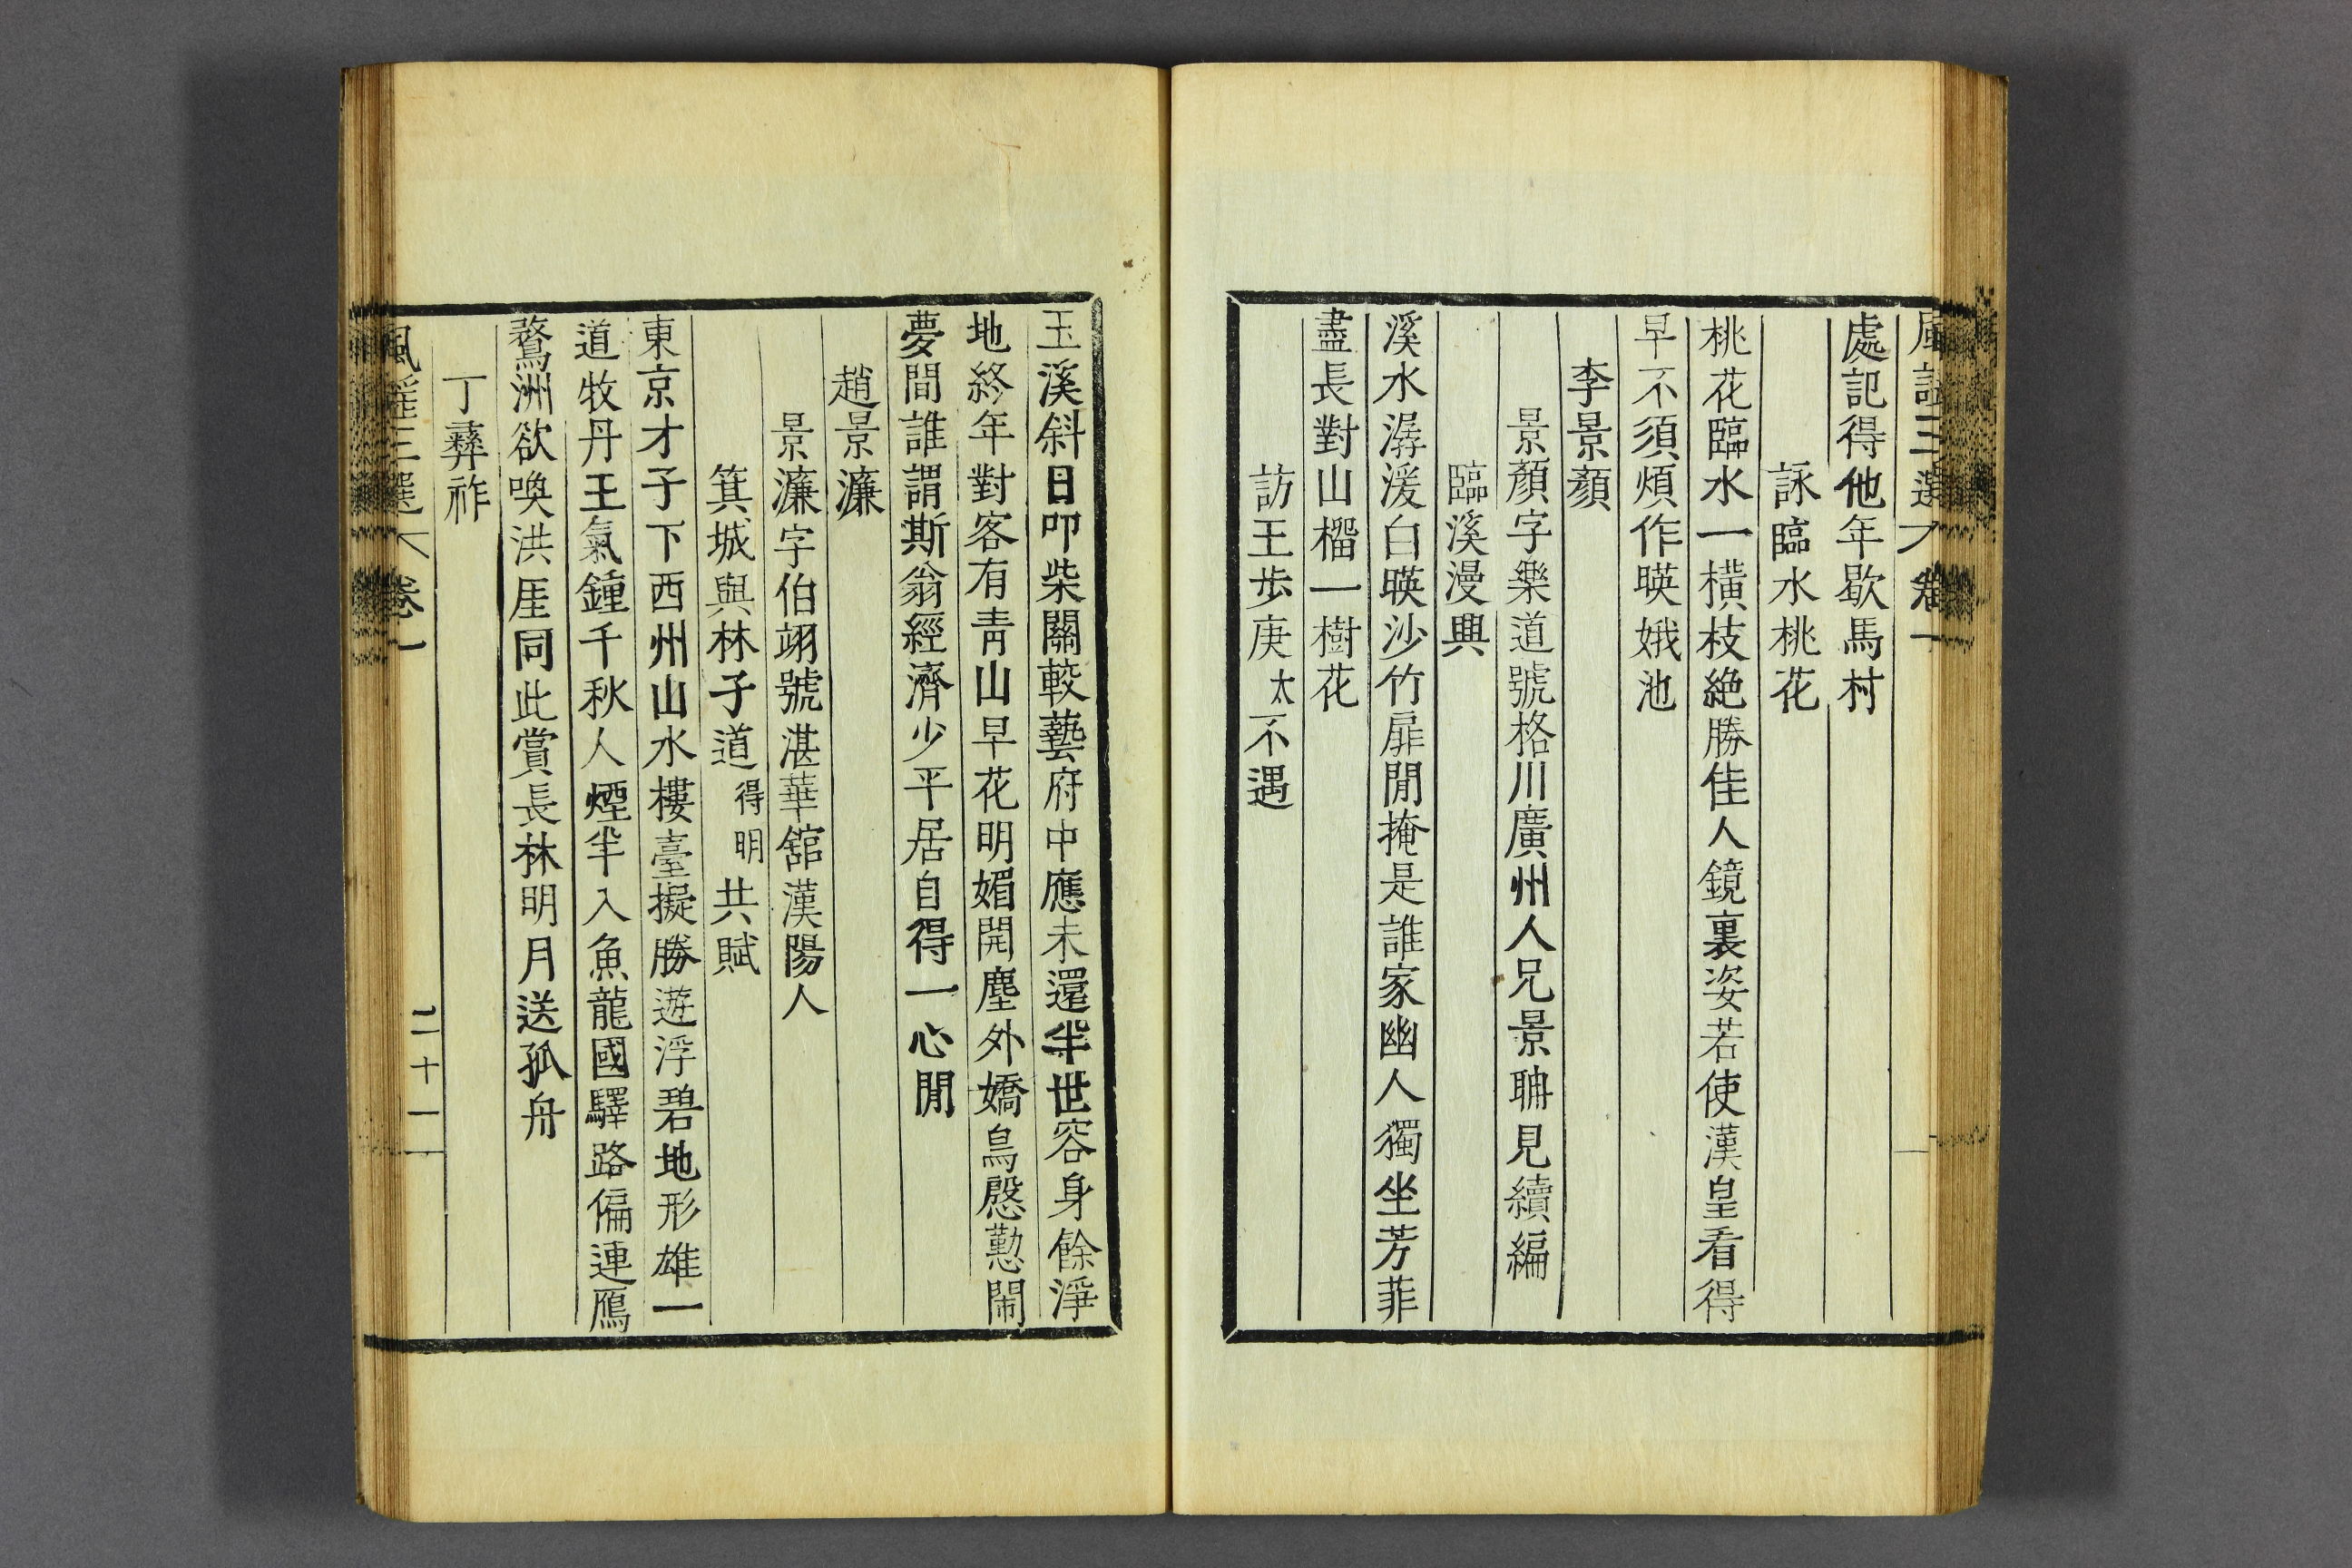 風謠三選 卷一
處記得他年歇馬村
詠臨水桃花
桃花臨水一橫枝絶勝佳人鏡裏姿若使漢皇看得
早不須煩作暎娥池
李景顏
景顏字樂道號格川廣州人兄景聃見續編
臨溪漫興
溪水潺湲白暎沙竹扉閒掩是誰家幽人獨坐芳菲
盡長對山榴一樹花
訪王步庚太不遇
玉溪斜日叩柴關較藝府中應未還半世容身餘淨
地終年對客有靑山早花明媚開塵外嬌鳥慇懃鬧
夢間誰謂斯翁經濟少平居自得一心閒
趙景濂
景濂字伯翊號湛華舘漢陽人
箕城與林子道得明共賦
東京才子下西州山水樓臺擬勝遊浮碧地形雄一
道牧丹王氣鍾千秋人煙半入魚龍國驛路偏連鴈
鶩洲欲喚洪厓同此賞長林明月送孤舟
丁彛祚
風謠三選 卷一 二十一